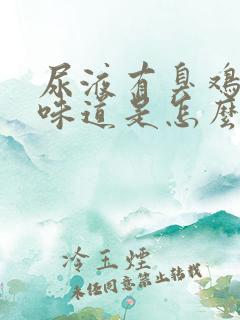 尿液有臭鸡
味道是怎么
冷玉煙
未经同意禁止转载